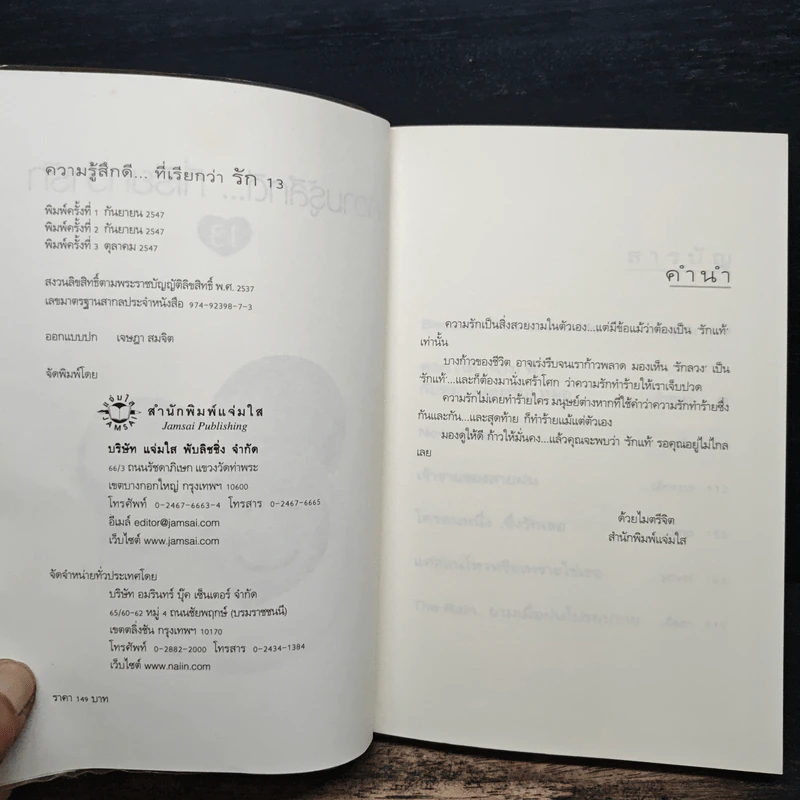 ความรู้สึกดี... ที่เรียกว่า รัก 13
พิมพ์ครั้งที่ 1 กันยายน 2547
พิมพ์ครั้งที่ 2 กันยายน 2547
พิมพ์ครั้งที่ 3 ตุลาคม 2547
สงวนลิขสิทธิ์ตามพระราชบัญญัติลิขสิทธิ์ พ.ศ. 2537
เลขมาตรฐานสากลประจำหนังสือ 974-92398-7-3
ออกแบบปก เจษฎา สมจิต
จัดพิมพ์โดย
แจ่มใส
JAMSAI
สำนักพิมพ์แจ่มใส
Jamsai Publishing
บริษัท แจ่มใส พับลิชชิ่ง จำกัด
66/3 ถนนรัชดาภิเษก แขวงวัดท่าพระ
เขตบางกอกใหญ่ กรุงเทพฯ 10600
โทรศัพท์ 0-2467-6663-4 โทรสาร 0-2467-6665
อีเมล์ editor@jamsai.com
เว็บไซต์ www.jamsai.com
จัดจำหน่ายทั่วประเทศโดย
บริษัท อมรินทร์ บุ๊ค เซ็นเตอร์ จำกัด
65/60-62 หมู่ 4 ถนนชัยพฤกษ์ (บรมราชชนนี)
เขตตลิ่งชัน กรุงเทพฯ 10170
โทรศัพท์ 0-2882-2000 โทรสาร 0-2434-1384
เว็บไซต์ www.naiin.com
ราคา 149 บาท
คำนำ
ความรักเป็นสิ่งสวยงามในตัวเอง...แต่มีข้อแม้ว่าต้องเป็น 'รักแท้'
เท่านั้น
บางก้าวของชีวิต อาจเร่งรีบจนเราก้าวพลาด มองเห็น 'รักลวง' เป็น
'รักแท้'...และก็ต้องมานั่งเศร้าโศก ว่าความรักทำร้ายให้เราเจ็บปวด
ความรักไม่เคยทำร้ายใคร มนุษย์ต่างหากที่ใช้คำว่าความรักทำร้ายซึ่ง
กันและกัน...และสุดท้าย ก็ทำร้ายแม้แต่ตัวเอง
มองดูให้ดี ก้าวให้มั่นคง...แล้วคุณจะพบว่า 'รักแท้' รอคุณอยู่ไม่ไกล
เลย
ด้วยไมตรีจิต
สำนักพิมพ์แจ่มใส